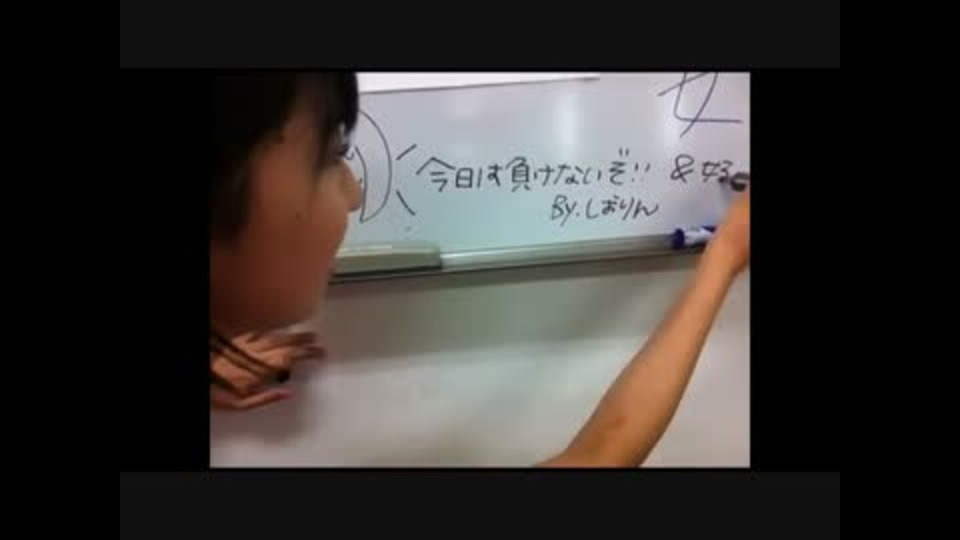 女
今日は負けないぞ!! &
By.しおりん